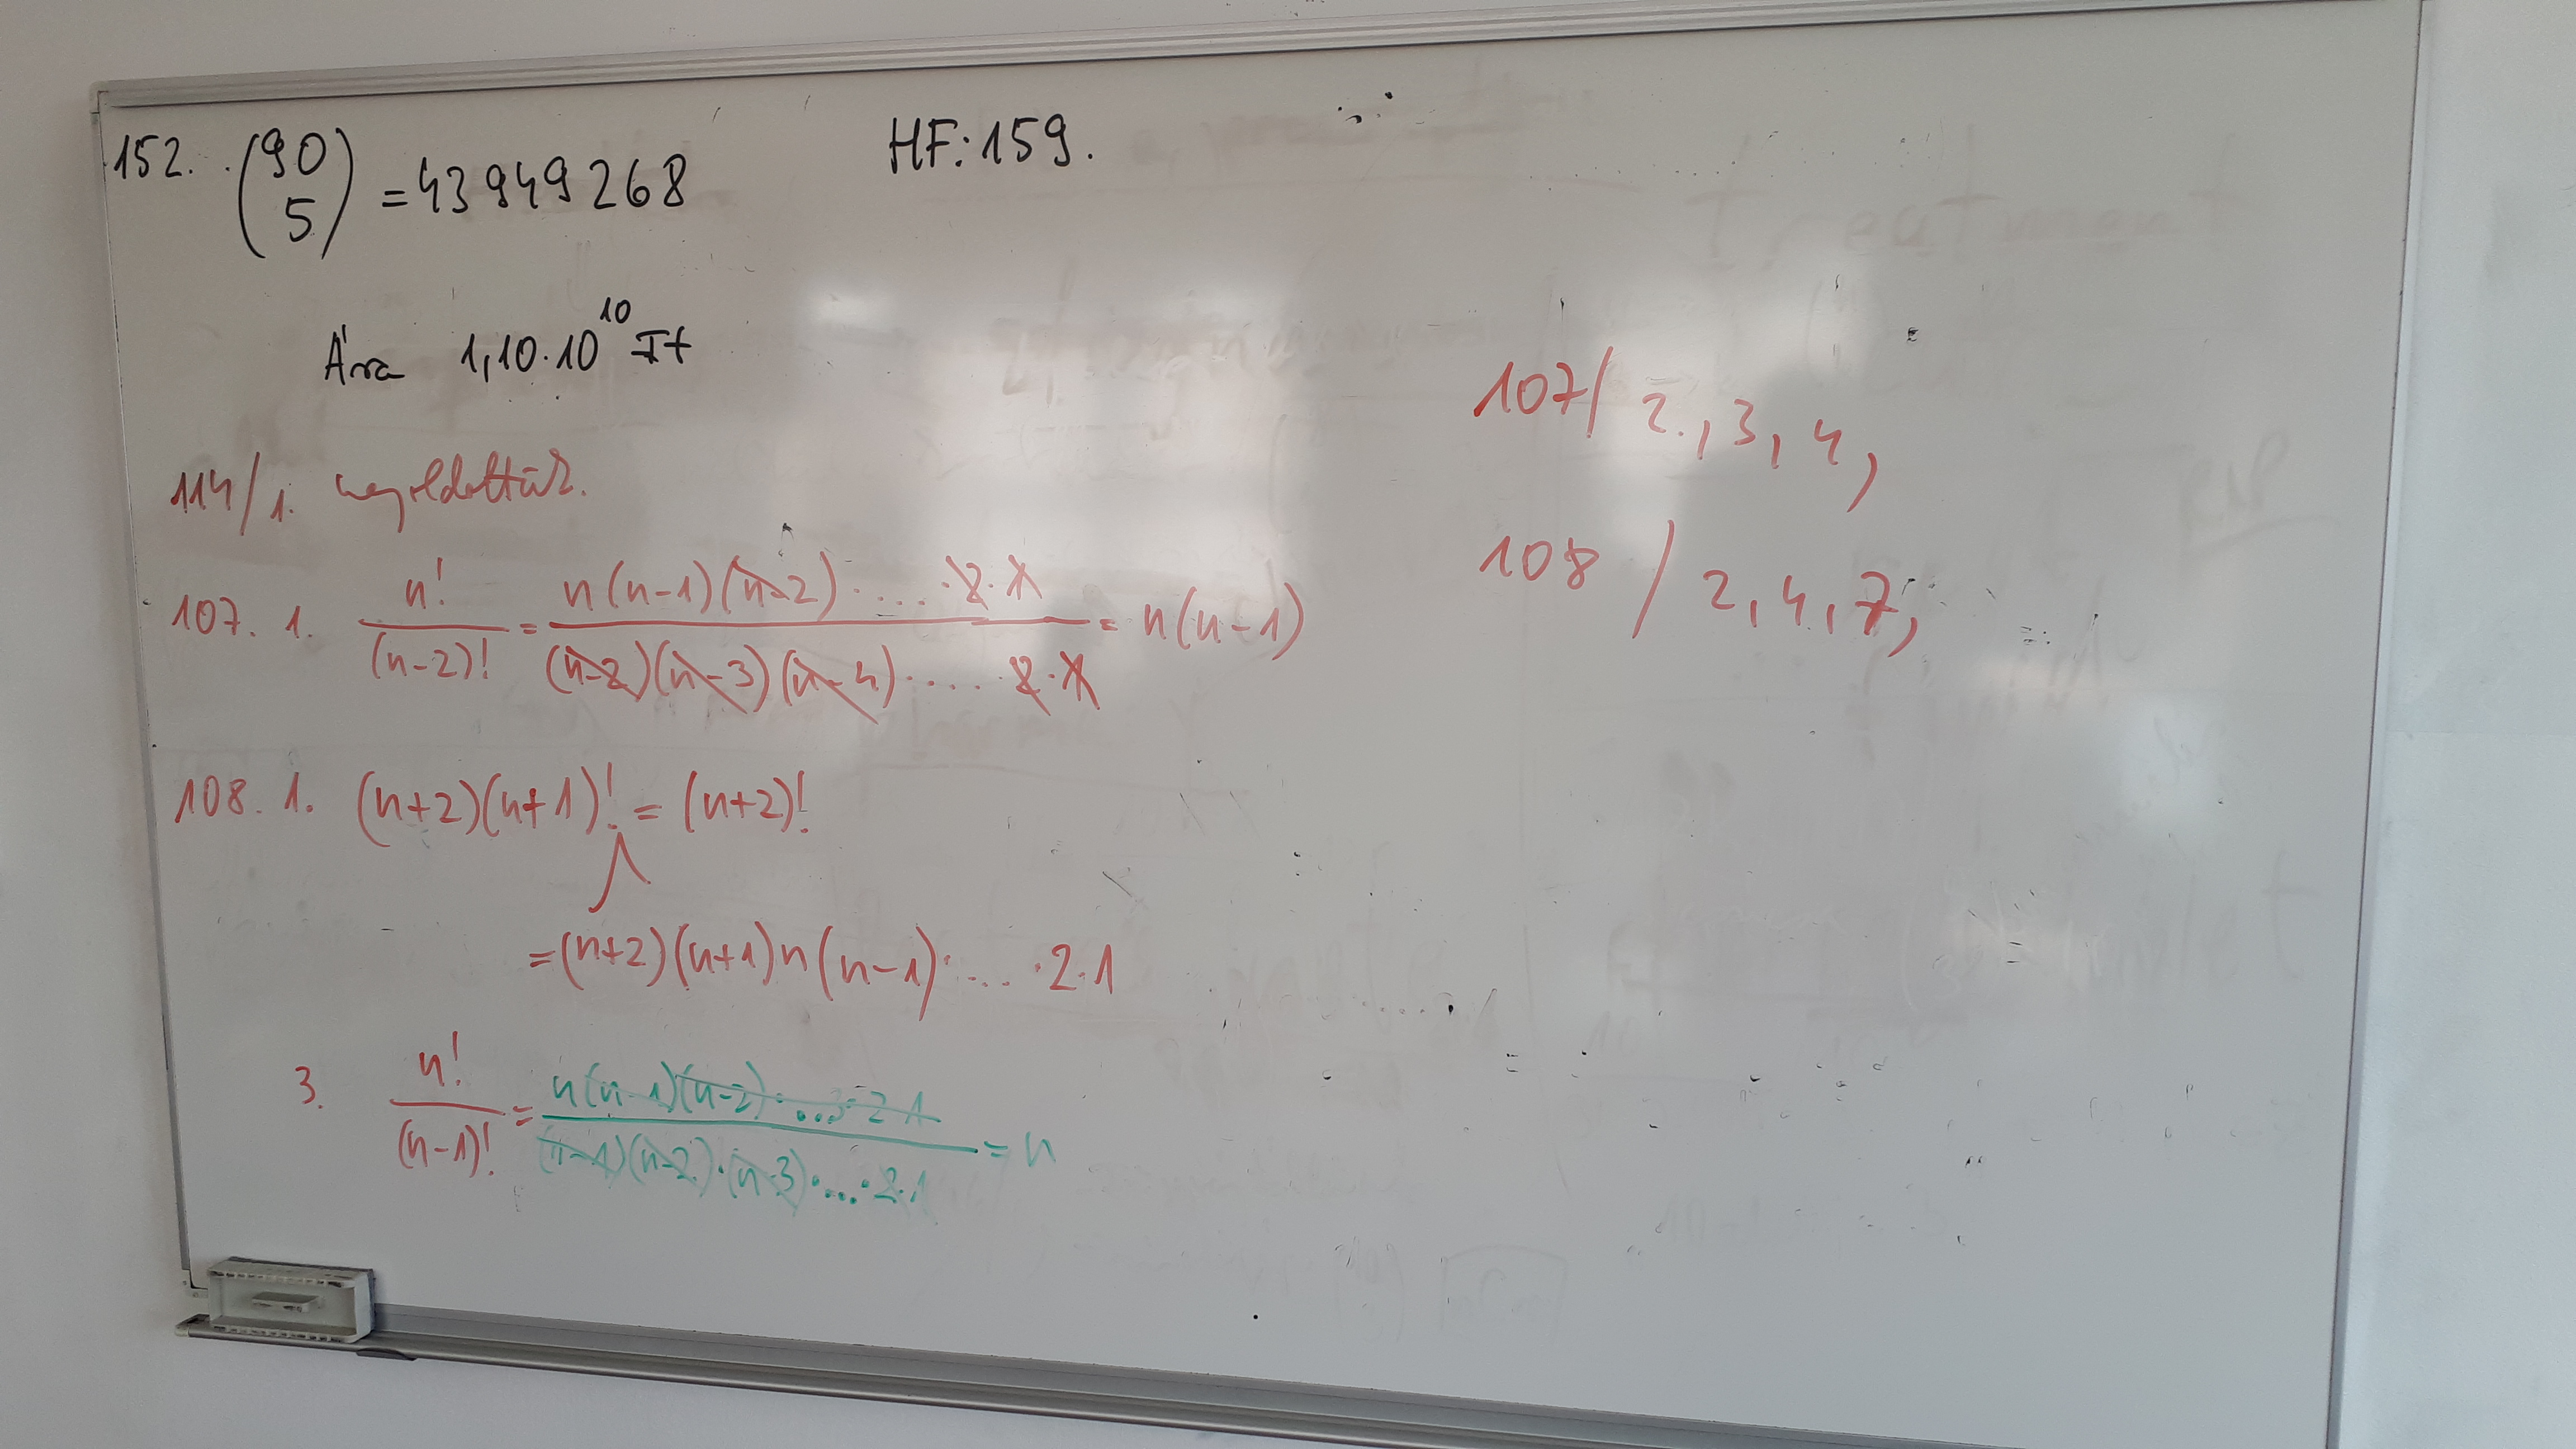 152. (90 5) = 43949268
HF: 159.
Ára 1,10·10^10 Ft
114/1. megoldottuk.
107/ 2., 3, 4,
108 / 2, 4, 7,
107. 1. n!/(n-2)! = n(n-1)(n-2)·....·2·1/(n-2)(n-3)(n-4)·....·2·1 = n(n-1)
108. 1. (n+2)(n+1)! = (n+2)!
=(n+2)(n+1)n(n-1)·....·2·1
3. n!/(n-1)! = n(n-1)(n-2)·...3·2·1/(n-1)(n-2)·(n-3)·...·2·1 = n